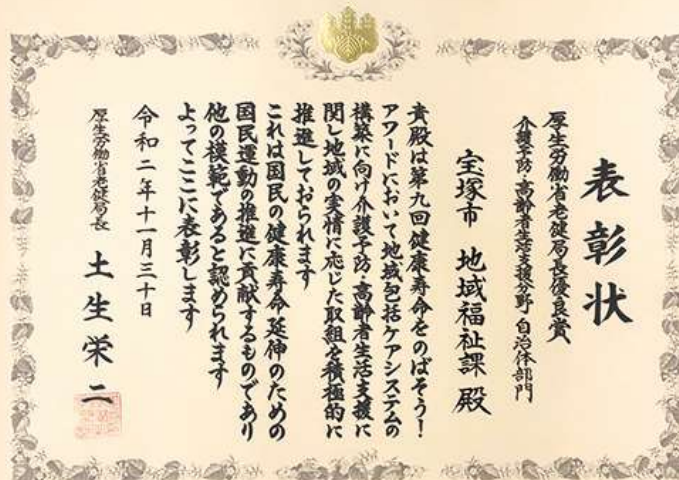 表彰状
厚生労働省老健局長優良賞
介護予防・高齢者生活支援分野 自治体部門
宝塚市 地域福祉課 殿
貴殿は第九回健康寿命をのばそう!
アワードにおいて地域包括ケアシステムの
構築に向け介護予防・高齢者生活支援に
関し地域の実情に応じた取組を積極的に
推進しておられます
これは国民の健康寿命延伸のための
国民運動の推進に貢献するものであり
他の模範であると認められます
よってここに表彰します
令和二年十一月三十日
厚生労働省老健局長 土生栄二